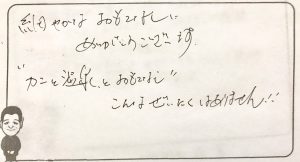 細やかな おもてなしに
ありがとうございます
"カニと温泉とおもてなし"
こんなぜいたくはありません!!